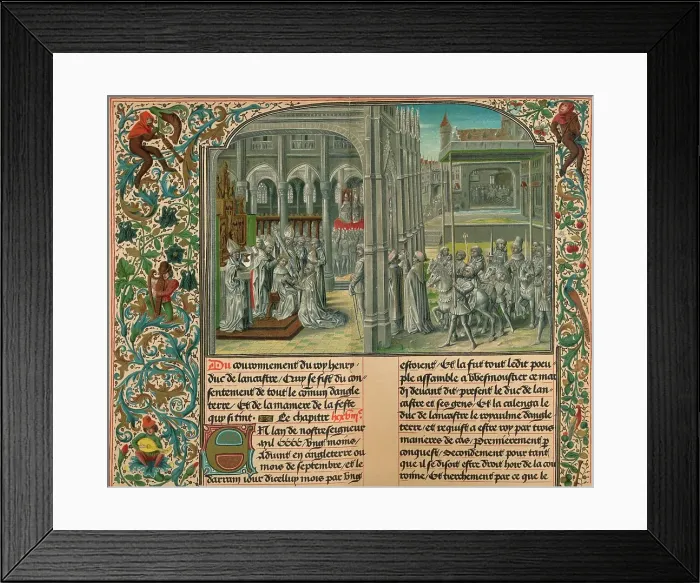 Du couronnement du roy henry
duc de lancastre / Quy se fist du con-
sentement de tout le comun dangle
terre / Et de la maniere de la feste
quy si tint. Le chapitre
En lan de nostreseigneur
mil CCCC / vng moins /
Aduint en angleterre ou
mois de septembre / et le
darrain iour dicelluy mois par vng
estoient / Et la fut tout ledit peu-
ple assamble a wesmoustier ce mar
dj deuant dit / present le duc de lan-
castre et ses gens / Et la calenga le
duc de lancastre le royaulme dangle
terre / et requist a estre roy par trois
manieres de cas / Premierement p
conqueste / Secondement pour tant
que il se disoit estre droit hoir de la cou
ronne / Et tiercement par ce que le